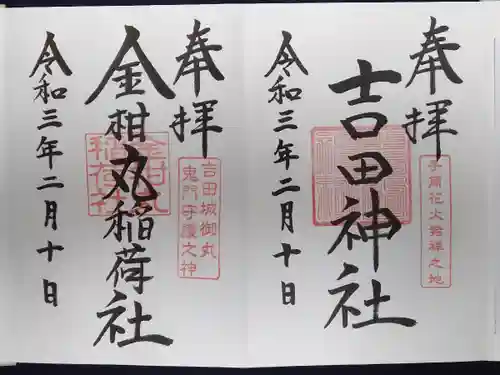 奉拝
手筒花火発祥之地
吉田神社
令和三年二月十日
奉拝
吉田城御丸
鬼門守護之神
金柑丸稲荷社
令和三年二月十日